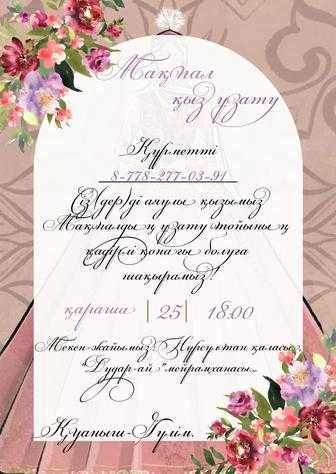 Мақпал
қыз ұзату
Құрметті
8-778-277-03-91
Сіз(дер)ді аяулы қызымыз
Мақпалдың ұзату тойының
қадірлі қонағы болуға
шақырамыз!
қараша | 25 | 18:00
Мекен-жайымыз: Нұрсұлтан қаласы,
"Дудар-ай" мейрамханасы.
Қуаныш-Гүлім.